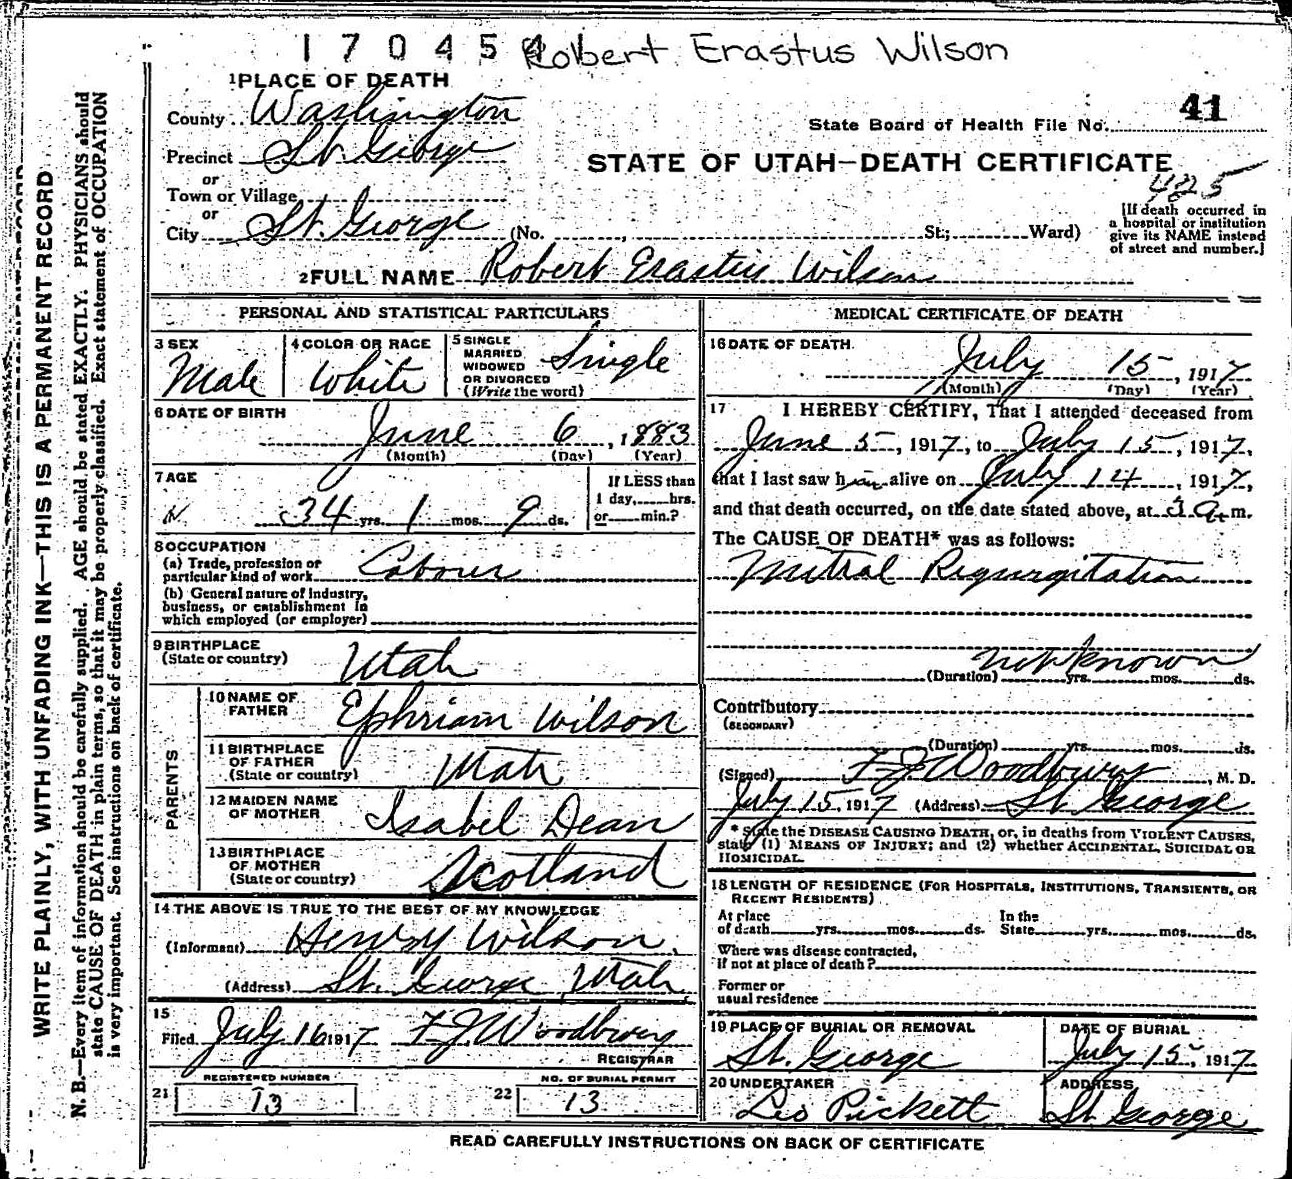 170454 Robert Erastus Wilson
1 PLACE OF DEATH
County Washington
41
State Board of Health File No.
Precinct St. George
STATE OF UTAH—DEATH CERTIFICATE
or
Town or Village
425
or
City St. George (No. , St; Ward)
[If death occurred in
a hospital or institution
give its NAME instead
of street and number.]
2 FULL NAME Robert Erastus Wilson
PERSONAL AND STATISTICAL PARTICULARS
3 SEX
Male
4 COLOR OR RACE
White
5 SINGLE
MARRIED
WIDOWED
OR DIVORCED
(Write the word)
Single
6 DATE OF BIRTH
June 6, 1883
(Month) (Day) (Year)
7 AGE
34 yrs. 1 mos. 9 ds.
If LESS than
1 day, hrs.
or min.?
8 OCCUPATION
(a) Trade, profession or
particular kind of work Labourer
(b) General nature of Industry,
business, or establishment in
which employed (or employer)
9 BIRTHPLACE
(State or country) Utah
PARENTS
10 NAME OF
FATHER Ephriam Wilson
11 BIRTHPLACE
OF FATHER
(State or country) Utah
12 MAIDEN NAME
OF MOTHER Isabel Dean
13 BIRTHPLACE
OF MOTHER
(State or country) Scotland
14 THE ABOVE IS TRUE TO THE BEST OF MY KNOWLEDGE
(Informant) Henry Wilson
(Address) St. George Utah
15
Filed July 16 1917 F J Woodbury
REGISTRAR
REGISTERED NUMBER
21 13
NO. OF BURIAL PERMIT
22 13
MEDICAL CERTIFICATE OF DEATH
16 DATE OF DEATH
July 15, 1917
(Month) (Day) (Year)
17 I HEREBY CERTIFY, That I attended deceased from
June 5, 1917, to July 15, 1917,
that I last saw him alive on July 14, 1917,
and that death occurred, on the date stated above, at 3 a. m.
The CAUSE OF DEATH* was as follows:
Mitral Regurgitation
not known
(Duration) yrs. mos. ds.
Contributory
(SECONDARY)
(Duration) yrs. mos. ds.
(Signed) F J Woodbury, M. D.
July 15, 1917 (Address) St. George
* State the DISEASE CAUSING DEATH, or, in deaths from VIOLENT CAUSES,
state (1) MEANS OF INJURY; and (2) whether ACCIDENTAL, SUICIDAL OR
HOMICIDAL.
18 LENGTH OF RESIDENCE (FOR HOSPITALS, INSTITUTIONS, TRANSIENTS, OR
RECENT RESIDENTS)
At place
of death yrs. mos. ds.
In the
State yrs. mos. ds.
Where was disease contracted,
if not at place of death?
Former or
usual residence
19 PLACE OF BURIAL OR REMOVAL
St. George
DATE OF BURIAL
July 15, 1917
20 UNDERTAKER
Leo Pickett
ADDRESS
St. George
READ CAREFULLY INSTRUCTIONS ON BACK OF CERTIFICATE
WRITE PLAINLY, WITH UNFADING INK—THIS IS A PERMANENT RECORD
N. B.—Every item of information should be carefully supplied. AGE should be stated EXACTLY. PHYSICIANS should
state CAUSE OF DEATH in plain terms, so that it may be properly classified. Exact statement of OCCUPATION
is very important. See instructions on back of certificate.